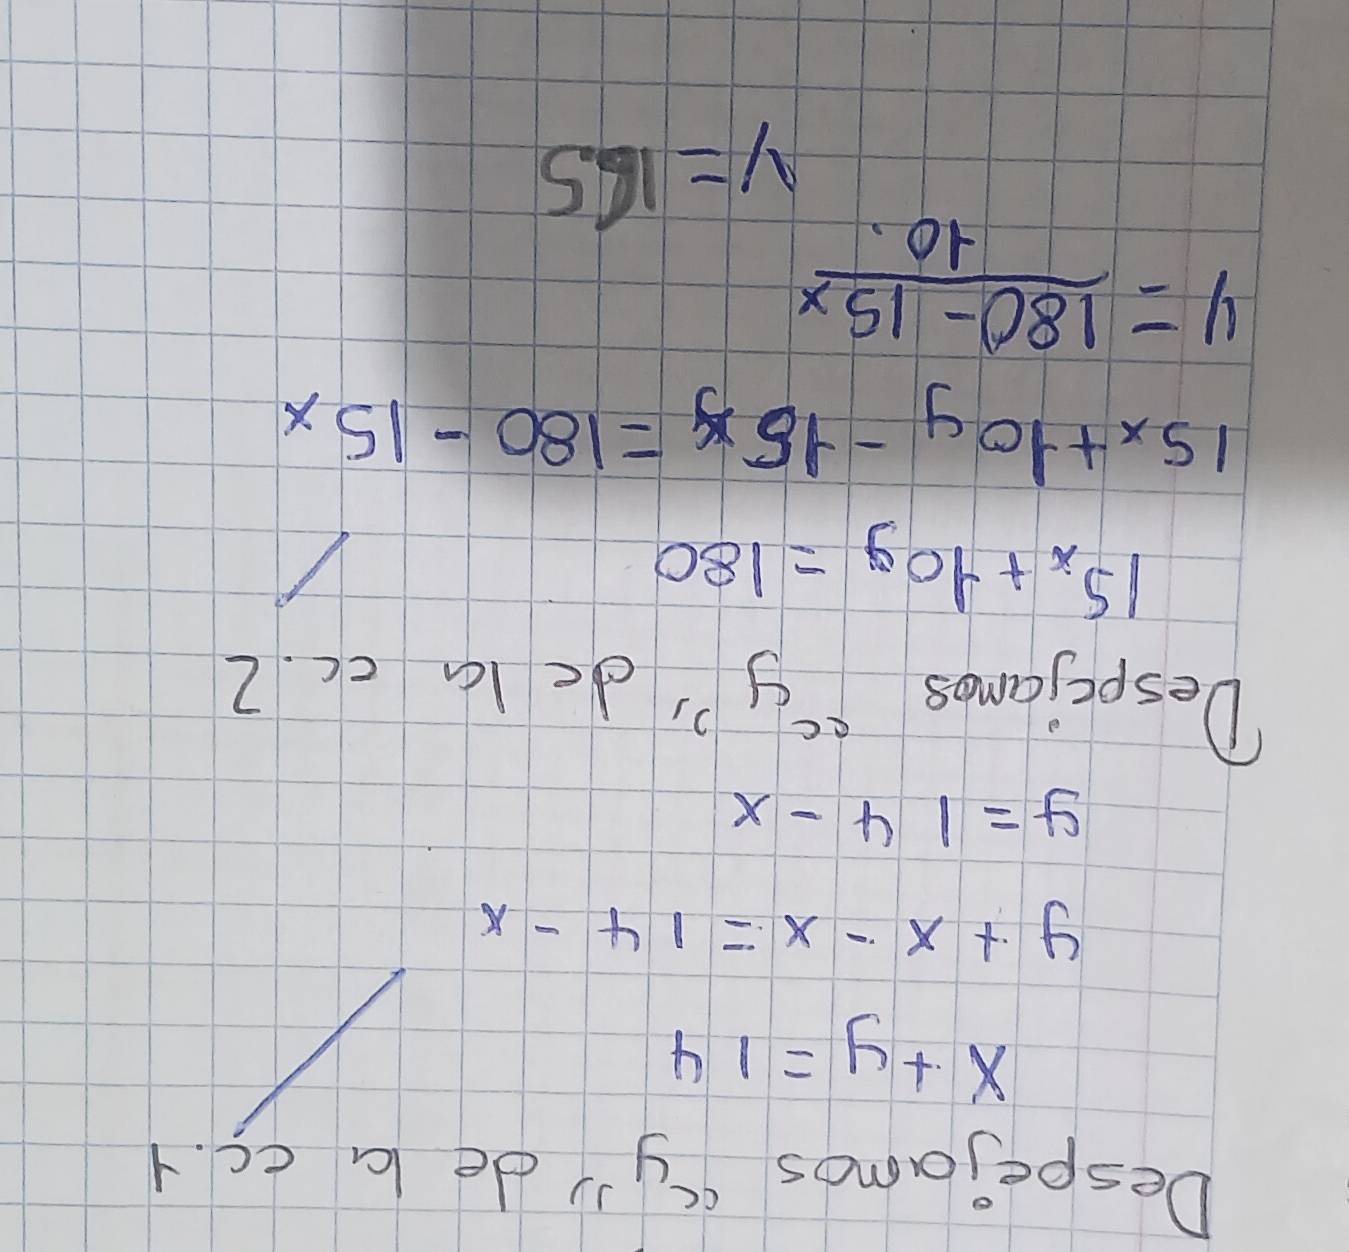 Despejamos "y" de la ec. 1
x + y = 14
y + x - x = 14 - x
y = 14 - x
Despejamos "y" de la ec. 2
15x + 10y = 180
15x + 10y - 15x = 180 - 15x
y = 180 - 15x
10
y = 165